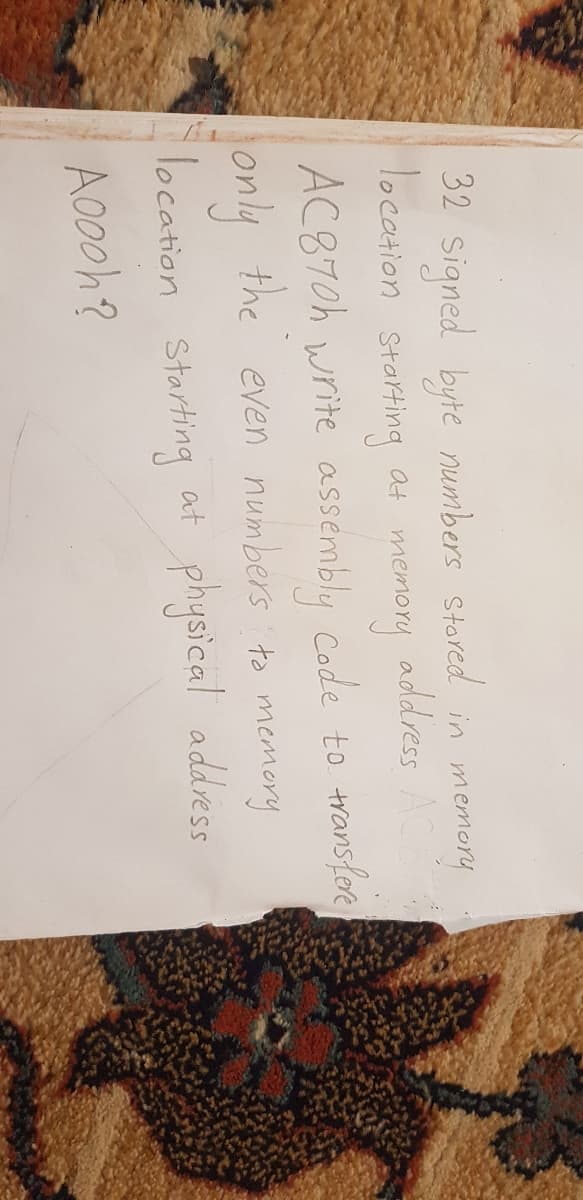 32 signed byte numbers stored in memory
location starting at memory address
AC870h write assembly code to transfere
only the even numbers to memory
location starting at physical address
A000h?